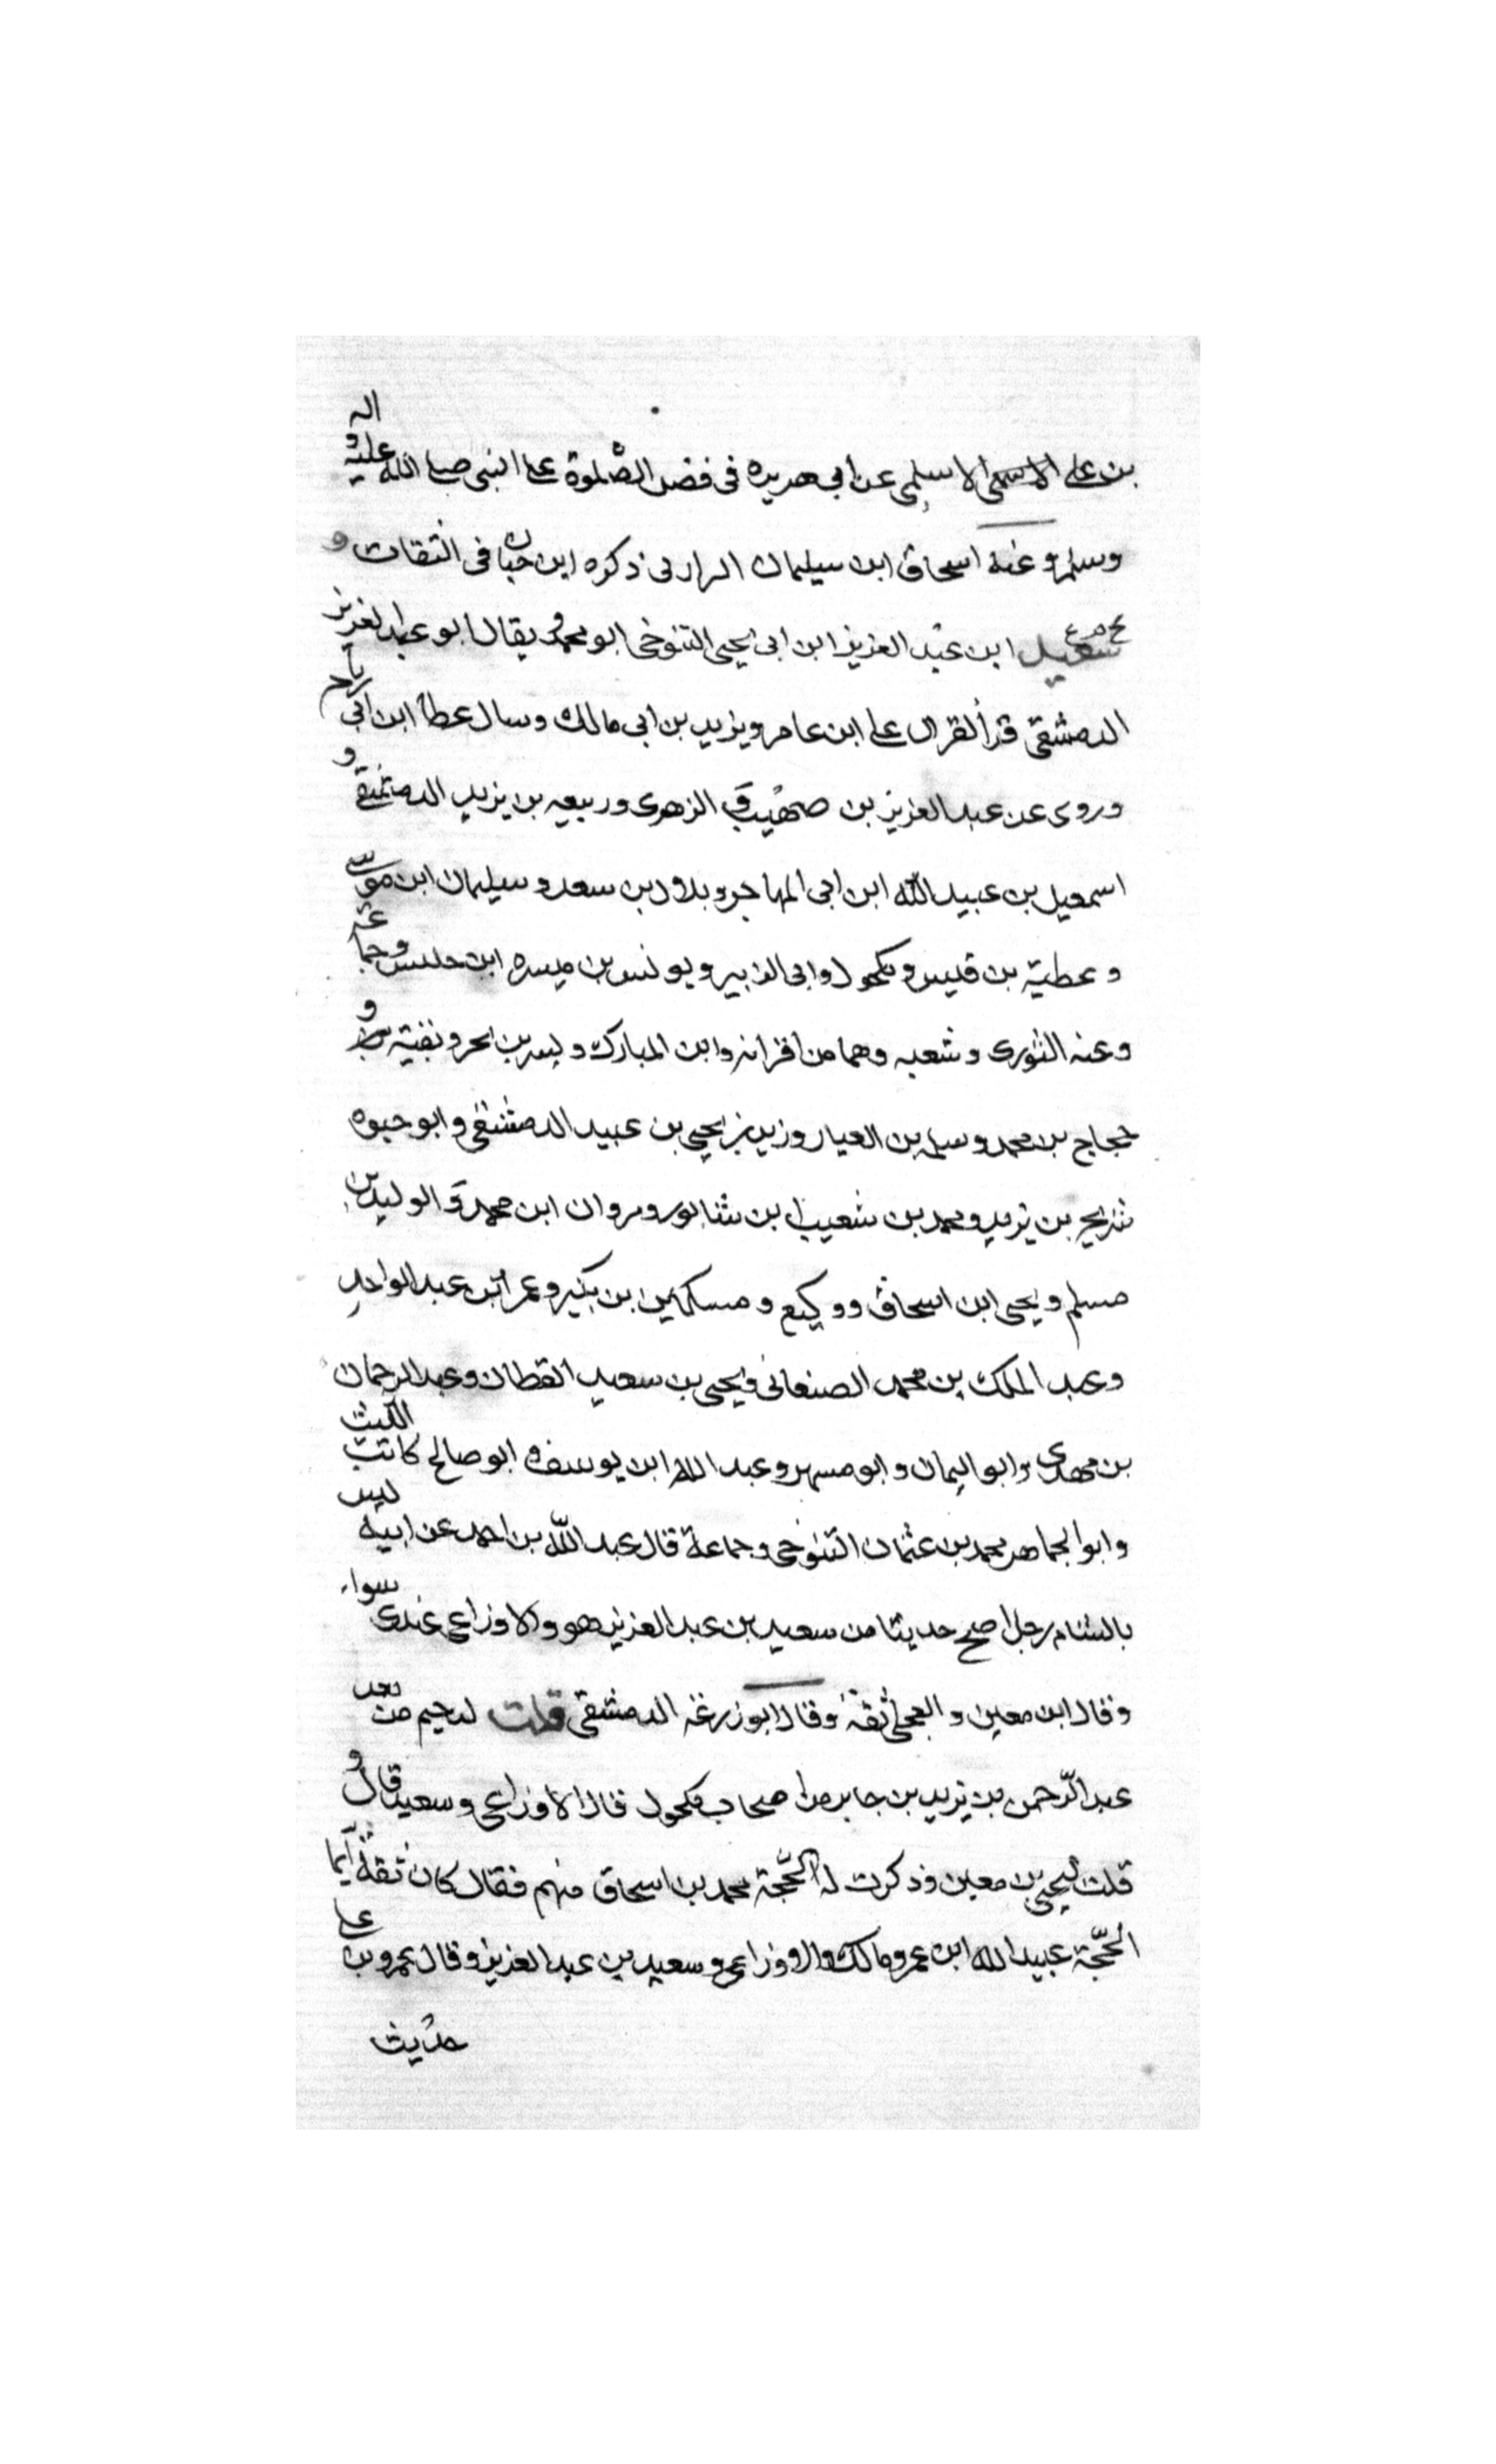 بن على الاسلمى عن ابى هريره فى فضل الصلوة على النبى صلى الله عليه و اله
وسلم وعنه اسحاق ابن سيلمان الرازى ذكره ابن حبان فى الثقات و
سعيد ابن عبد العزيز ابن ابى يحيى التنوخى ابو محمد و يقال ابو عبد العزيز
الدمشقى قرأ القران على ابن عامر ويزيد بن ابى مالك وسال عطا ابن ابى رباح
وروى عن عبد العزيز بن صهيب و الزهرى وربيعه بن يزيد الدمشقى و
اسمعيل بن عبيد الله ابن ابى المهاجر وبلال بن سعد و سيلمان ابن موسى
و عطية بن قيس ومكحول وابى الزبير ويونس بن ميسره ابن حلبس وجماعة
وعنه الثورى وشعبه وهما من اقرانه وابن المبارك و بن بكر وبقية و
حجاج بن محمد وسلمه بن العيار وزيد بن يحيى بن عبيد الدمشقى وابو حيوه
شريح بن يزيد ومحمد بن شعيب بن شابور ومروان ابن محمد و الوليد بن
مسلم ويحيى ابن اسحاق ووكيع و مسكين بن بكير وعمر ابن عبد الواحد
وعبد الملك بن محمد الصنعانى ويحيى بن سعيد القطان وعبد الرحمان
بن مهدى وابو اليمان وابو مسهر وعبد الله ابن يوسف و ابو صالح كاتب الليث
وابو الجماهر محمد بن عثمان التنوخى وجماعة قال عبد الله بن احمد عن ابيه ليس
بالشام رجل اصح حديثا من سعيد بن عبد العزيز هو والاوزاعى عندى سواء
وقال ابن معين والعجلى ثقة وقال ابو زرعه الدمشقى قلت لدحيم من بعد
عبد الرحمن بن يزيد بن جابر من اصحاب مكحول قال الاوزاعى وسعيد قال و
قلت ليحيى بن معين وذكرت له الحجة محمد بن اسحاق منهم فقال كان ثقة انما
الحجة عبيد الله ابن عمر ومالك والاوزاعى وسعيد بن عبد العزيز وقال عمرو بن على
حديث